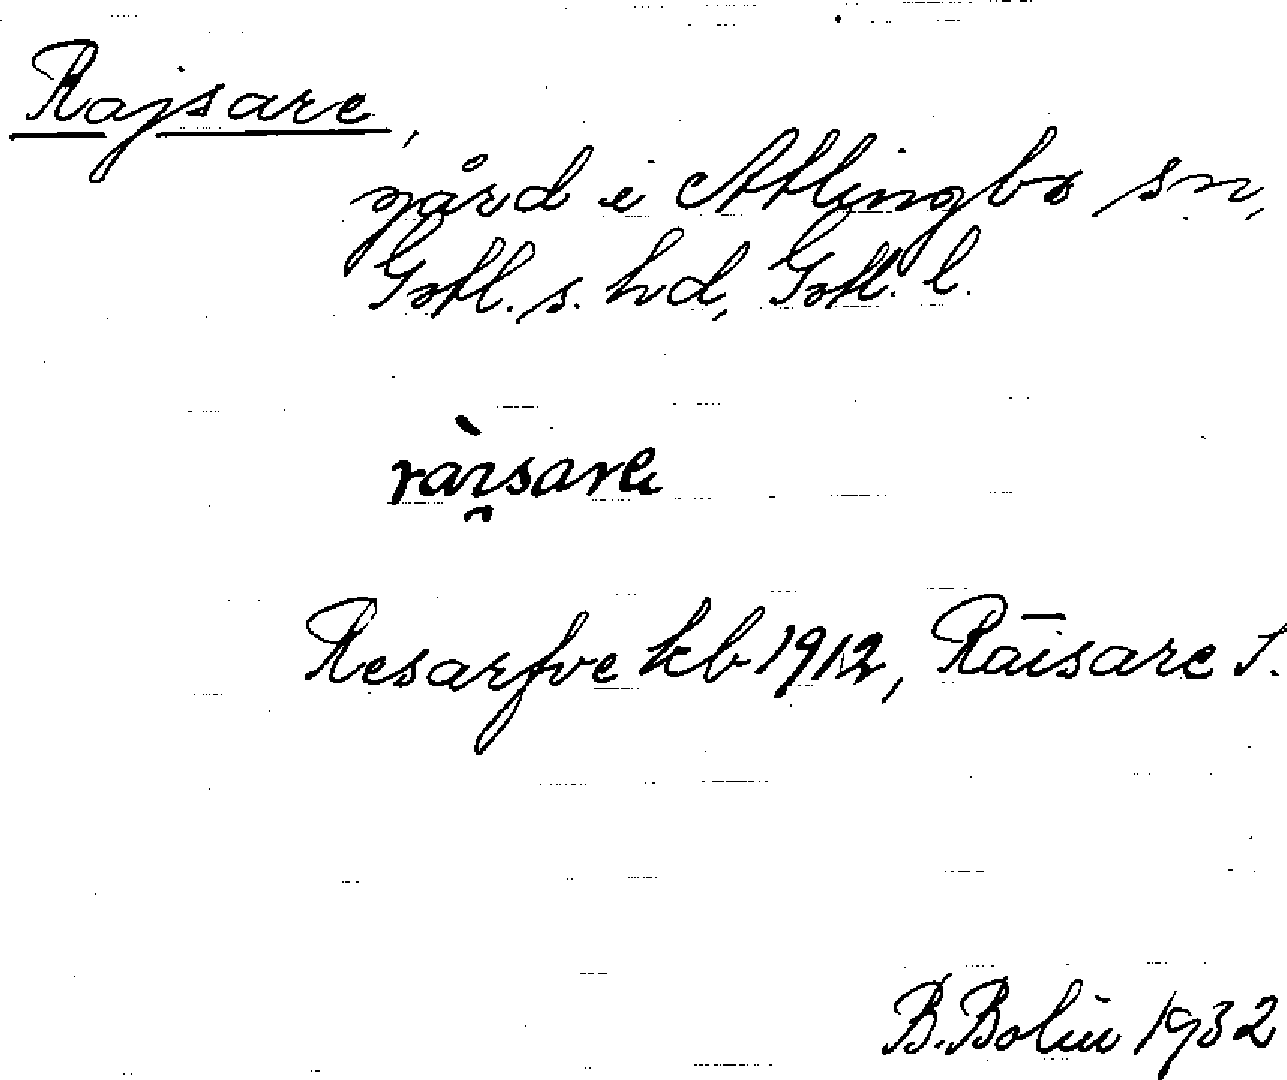 Rajsare,
gård i Atlingbo sn,
Gotl. s. hd, Gotl. l.
ràı̯sarɛ
Resarfve kb 1912, Rāisare S.
B. Bolin 1932